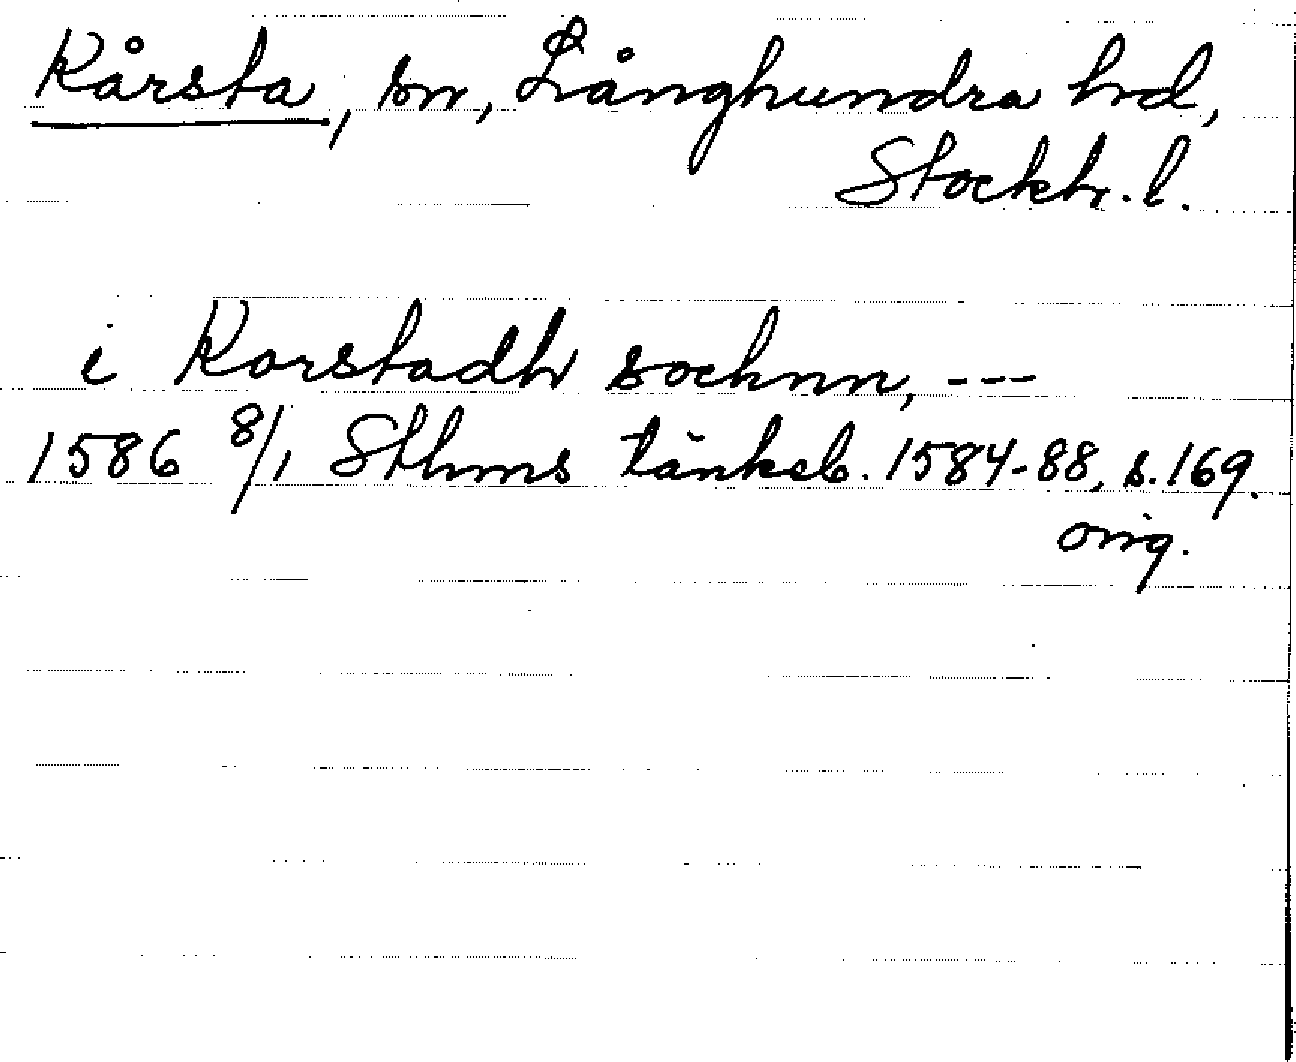 Kårsta, sn, Långhundra hd,
Stockh. l.
i Karstadh sochnn, ---
1586 8/1 Sthms tänkeb. 1584-88, s. 169.
orig.